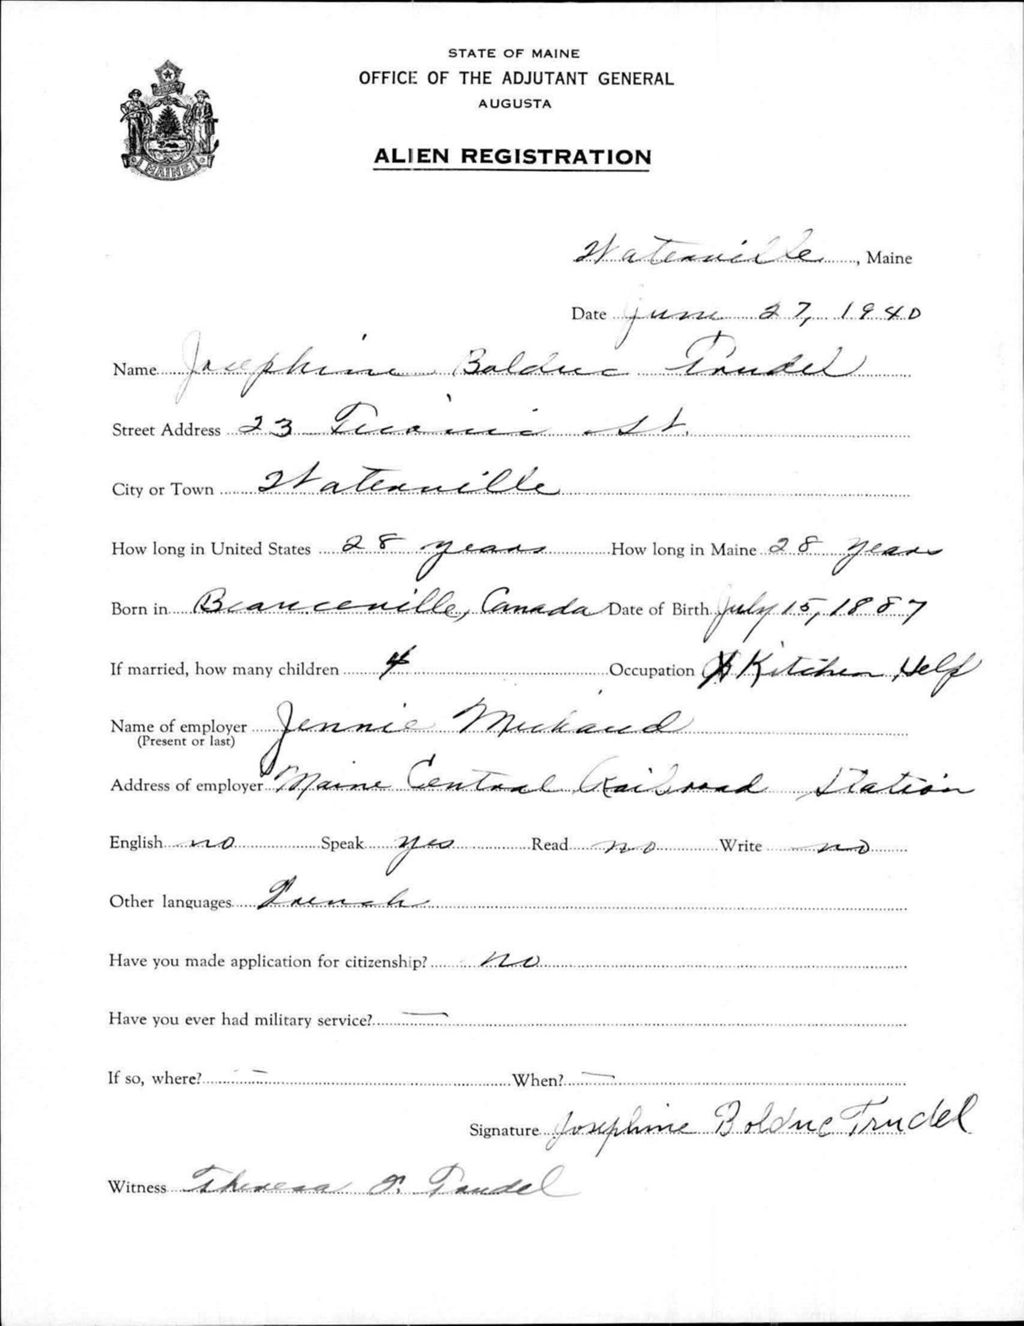 STATE OF MAINE
OFFICE OF THE ADJUTANT GENERAL
AUGUSTA
ALIEN REGISTRATION
MAINE
Waterville, Maine
Date June 27, 1940
Name Josephine Bolduc Trudel
Street Address 23 Ticonic St.
City or Town Waterville
How long in United States 28 years How long in Maine 28 years
Born in Beauceville, Canada Date of Birth July 15, 1887
If married, how many children 4 Occupation Kitchen Help
Name of employer Jennie Michaud
(Present or last)
Address of employer Maine Central Railroad Station
English no Speak yes Read no Write no
Other languages French
Have you made application for citizenship? no
Have you ever had military service? —
If so, where? — When? —
Signature Josephine Bolduc Trudel
Witness Theresa Trudel